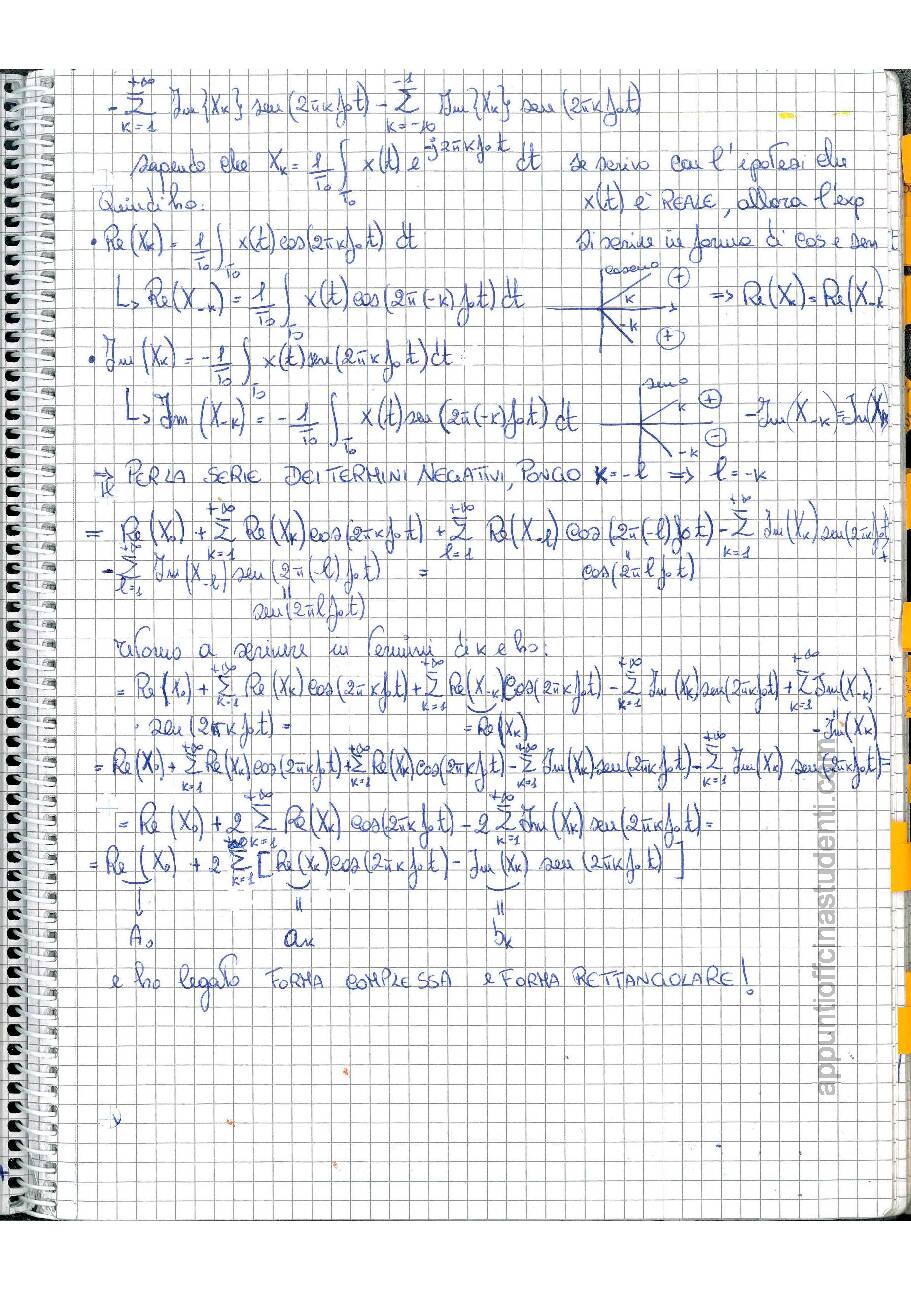 - Σ_{k=1}^{+∞} Im{X_k} sen(2πkf₀t) - Σ_{k=-∞}^{-1} Im{X_k} sen(2πkf₀t)
sapendo che X_k = 1/T₀ ∫_{T₀} x(t) e^{-j2πkf₀t} dt se scrivo con l'ipotesi che
Quindi ho: x(t) è REALE, allora l'exp
• Re(X_k) = 1/T₀ ∫_{T₀} x(t) cos(2πkf₀t) dt si scrive in forma di cos e sen
↳ Re(X_{-k}) = 1/T₀ ∫_{T₀} x(t) cos(2π(-k)f₀t) dt coseno k + -k + => Re(X_k) = Re(X_{-k}
• Im(X_k) = - 1/T₀ ∫_{T₀} x(t) sen(2πkf₀t) dt
↳ Im(X_{-k}) = - 1/T₀ ∫_{T₀} x(t) sen(2π(-k)f₀t) dt seno k + -k - - Im(X_{-k}) = Im(X_k
→ PER LA SERIE DEI TERMINI NEGATIVI, PONGO k = -l => l = -k
= Re(X₀) + Σ_{k=1}^{+∞} Re(X_k) cos(2πkf₀t) + Σ_{l=1}^{+∞} Re(X_{-l}) cos(2π(-l)f₀t) - Σ_{k=1}^{+∞} Im(X_k) sen(2πkf₀t)
- Σ_{l=1}^{+∞} Im(X_{-l}) sen(2π(-l)f₀t) = cos(2πlf₀t)
sen(2πlf₀t)
ritorno a scrivere in termini di k e ho:
= Re(X₀) + Σ_{k=1}^{+∞} Re(X_k) cos(2πkf₀t) + Σ_{k=1}^{+∞} Re(X_{-k}) cos(2πkf₀t) - Σ_{k=1}^{+∞} Im(X_k) sen(2πkf₀t) + Σ_{k=1}^{+∞} Im(X_{-k}) ·
· sen(2πkf₀t) = = Re(X_k) - Im(X_k)
= Re(X₀) + Σ_{k=1}^{+∞} Re(X_k) cos(2πkf₀t) + Σ_{k=1}^{+∞} Re(X_k) cos(2πkf₀t) - Σ_{k=1}^{+∞} Im(X_k) sen(2πkf₀t) - Σ_{k=1}^{+∞} Im(X_k) sen(2πkf₀t) =
= Re(X₀) + 2 Σ_{k=1}^{+∞} Re(X_k) cos(2πkf₀t) - 2 Σ_{k=1}^{+∞} Im(X_k) sen(2πkf₀t) =
= Re(X₀) + 2 Σ_{k=1}^{+∞} [Re(X_k) cos(2πkf₀t) - Im(X_k) sen(2πkf₀t)]
↓ = =
A₀ a_k b_k
e ho legato FORMA COMPLESSA e FORMA RETTANGOLARE!
appuntiofficinastudenti.com